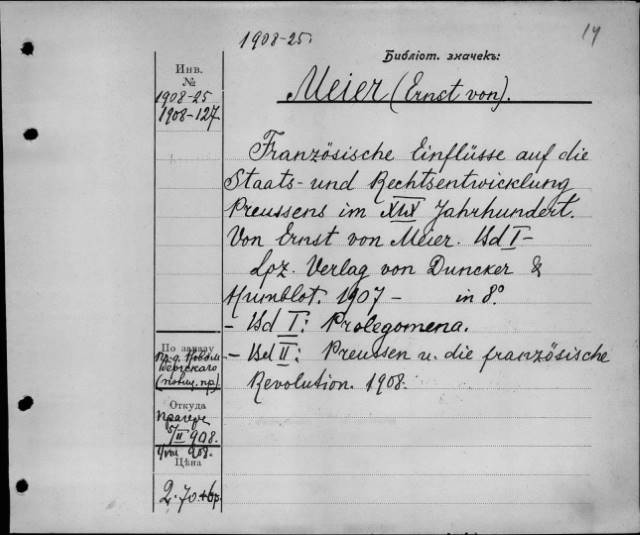 1908-25.
14
Библіот. значекъ:
Инв.
№
1908-25
1908-127
Meier (Ernst von).
Französische Einflüsse auf die
Staats- und Rechtsentwicklung
Preussens im XIX Jahrhundert.
Von Ernst von Meier. Bd I-
Lpz. Verlag von Duncker &
Humblot. 1907 - in 8º
- Bd I: Prolegomena.
- Bd II: Preussen u. die französische
Revolution. 1908.
По заказу
(полиц. пр.)
Откуда
5/II 908.
908.
Цѣна
2.70